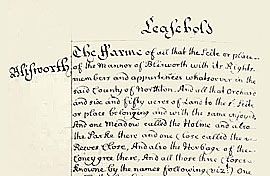 Leasehold
Blisworth
The Farme of all that the Scite or place
of the Mannor of Blisworth with its Rights
members and appurtences whatsoever in the
said County of Northton. And all that Orchard
and six and fifty acres of Land to the sd. Scite
or place belonging and with the same Oxyard
And one Meadow called the Holme and also
the Parke there and one Close called the
Reeves Close, And also the Herbage of the
Coney gree there, And all those three Closes
knowne by the names following (viz:) One